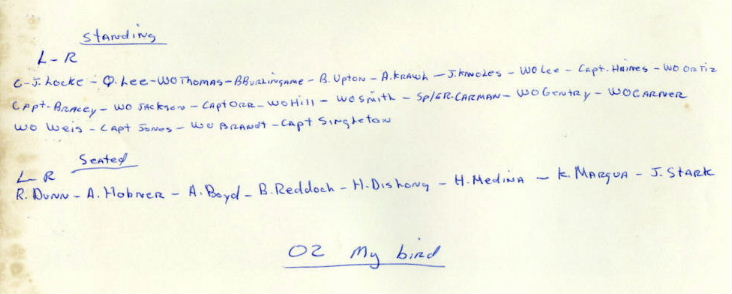 Standing
L-R
C-J. Locke - Q. Lee - WO Thomas - B Burlingame - B. Upton - A. Krawk - J. Knowles - WO Lee - Capt. Haines - WO Ortiz
Capt. Bracey - WO Jackson - Capt Orr - WO Hill - WO Smith - Sp/6 R. Carman - WO Gentry - WO Carner
WO Weis - Capt Jones - WO Brandt - Capt Singleton
Seated
L-R
R. Dunn - A. Hobner - A. Boyd - B. Reddoch - H. Dishong - H. Medina - K. Margua - J. Stark
02 My bird